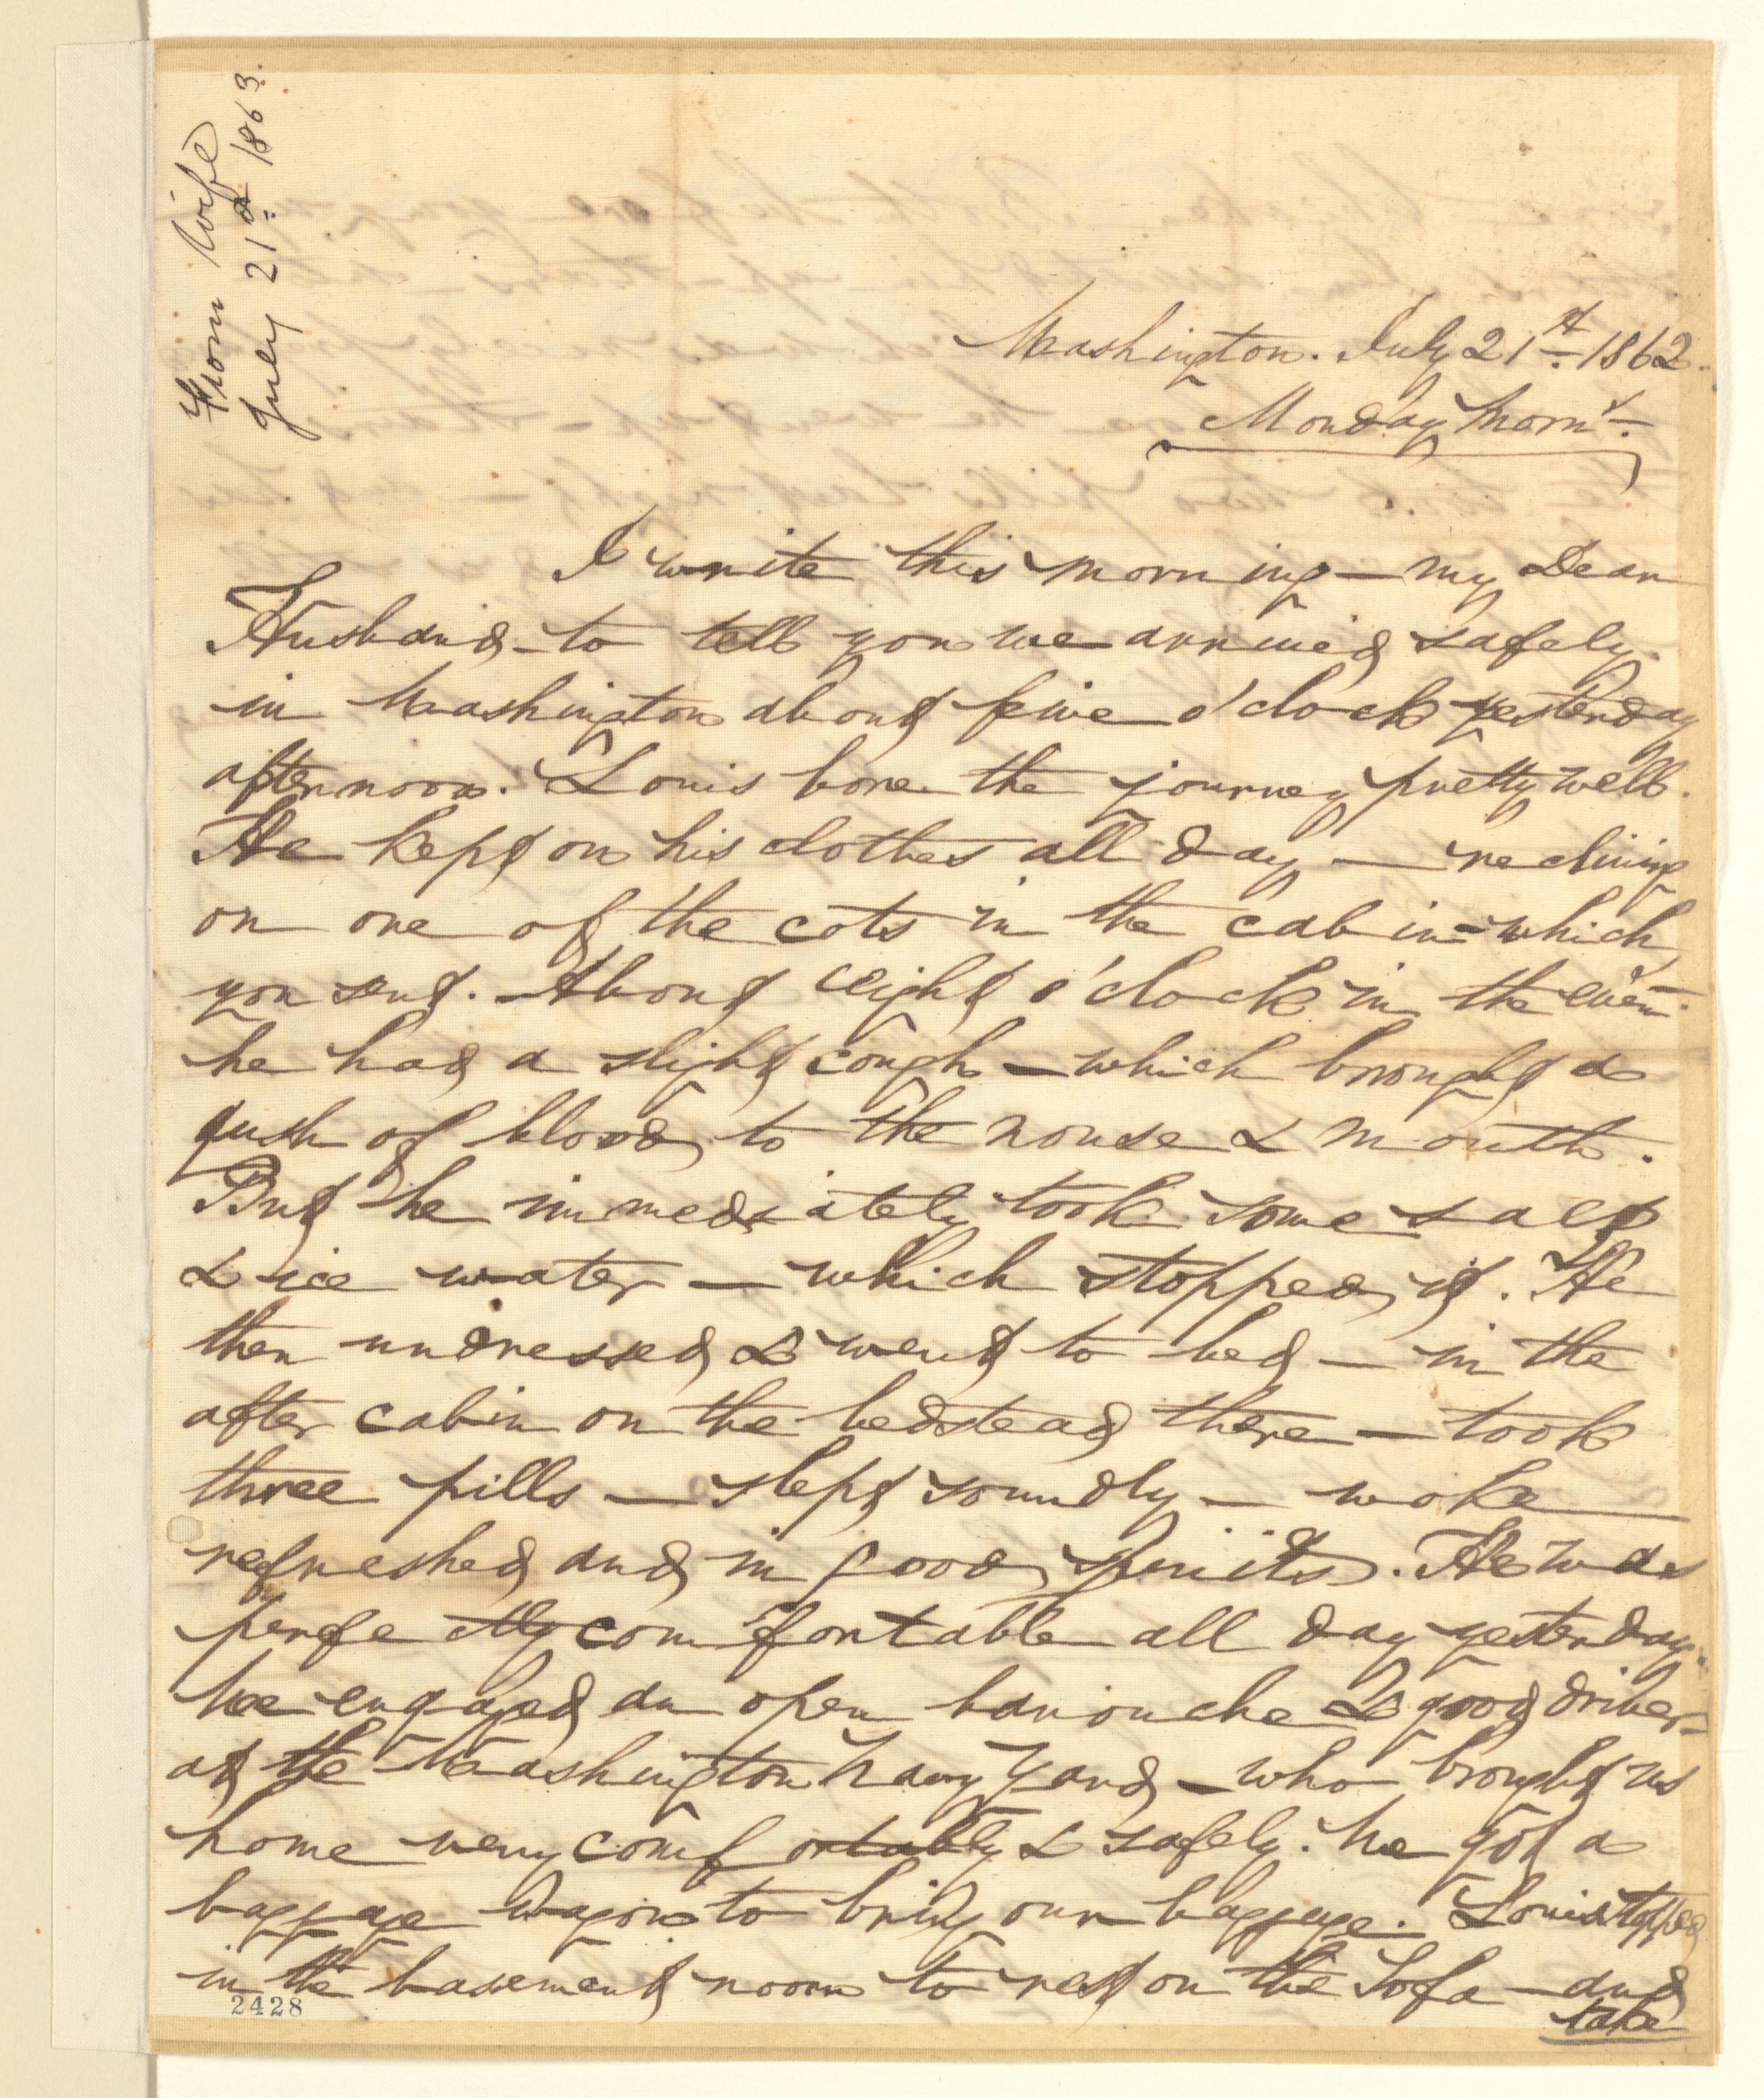 From Wife
July 21st 1863.
Washington. July 21st. 1862.
Monday Morng.
I write this morning — my Dear
Husband — to tell you we arrived safely
in Washington about five o'clock yesterday
afternoon. Louis bore the journey pretty well.
He kept on his clothes all day — reclining
on one of the cots in the cabin — which
you sent. About eight o'clock in the eveng.
he had a slight cough — which brought a
gush of blood, to the nouse & mouth.
But he immediately took some salt
& ice water — which stopped, it. He
then undressed & went to bed — in the
after cabin on the bedstead there — took
three pills — slept soundly — woke
refreshed and in good, spirits. He was
perfectly comfortable all day yesterday.
We engaged an open barouche & good driver
at the Washington Navy Yard — who brought us
home very comfortably & safely. We got a
baggage wagon to bring our baggage. Louis stopped
in the basement room to rest on the Sofa — and
take
2428